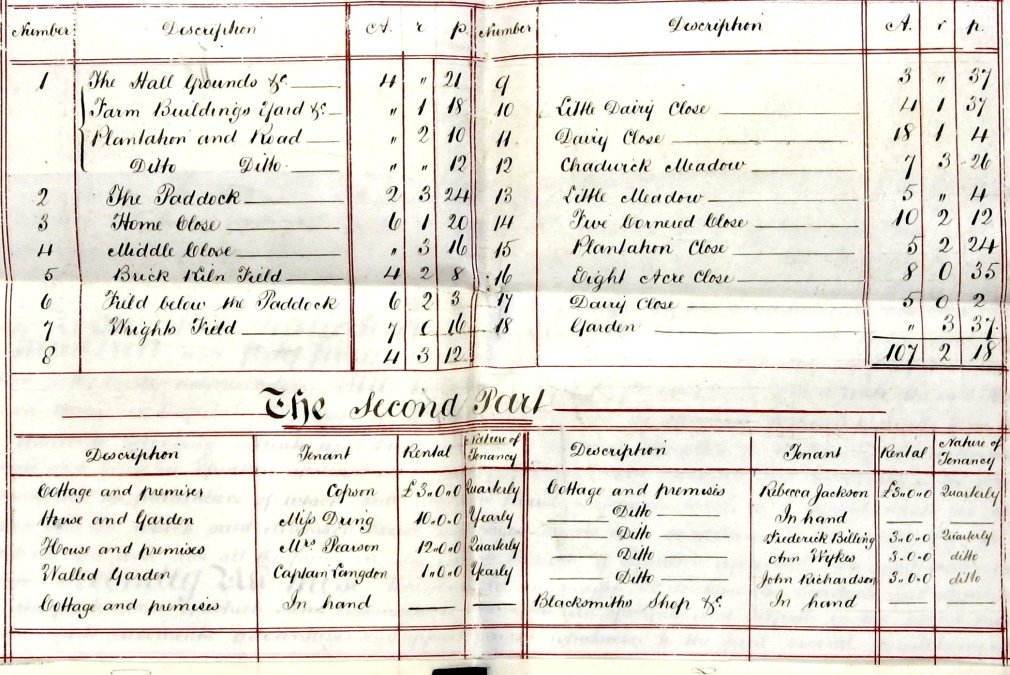 Number Description A. r p.
1 The Hall Grounds &c. 4 " 21
Farm Buildings Yard &c. " 1 18
Plantation and Road " 2 10
Ditto Ditto " " 12
2 The Paddock 2 3 24
3 Home Close 6 1 20
4 Middle Close " 3 16
5 Brick Kiln Field 4 2 8
6 Field below the Paddock 6 2 3
7 Wrights Field 7 0 16
8 4 3 12
Number Description A. r p.
9 3 " 37
10 Little Dairy Close 4 1 37
11 Dairy Close 18 1 4
12 Chadwick Meadow 7 3 26
13 Little Meadow 5 " 4
14 Five Cornered Close 10 2 12
15 Plantation Close 5 2 24
16 Eight Acre Close 8 0 35
17 Dairy Close 5 0 2
18 Garden " 3 37
107 2 18
The Second Part
Description Tenant Rental Nature of Tenancy
Cottage and premises Copson £3,,0,,0 Quarterly
House and Garden Miss Dring 10.0.0 Yearly
House and premises Mrs Pearson 12.0.0 Quarterly
Walled Garden Captain Langdon 1.0.0 Yearly
Cottage and premises In hand
Description Tenant Rental Nature of Tenancy
Cottage and premises Rebecca Jackson £3,,0,,0 Quarterly
Ditto In hand
Ditto Frederick Billing 3.0.0 Quarterly
Ditto Ann Wykes 3.0.0 ditto
Ditto John Richardson 3.0.0 ditto
Blacksmiths Shop &c. In hand